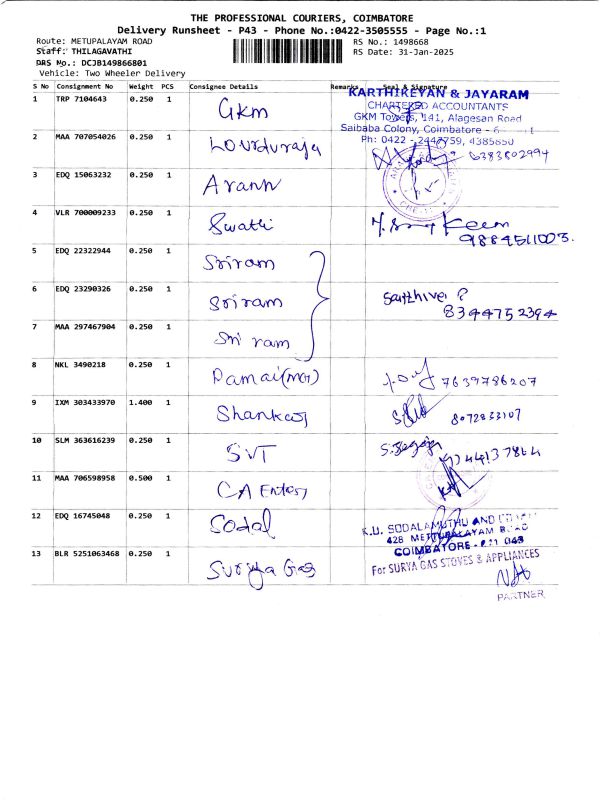 THE PROFESSIONAL COURIERS, COIMBATORE
Delivery Runsheet - P43 - Phone No.:0422-3505555 - Page No.:1
Route: METUPALAYAM ROAD RS No.: 1498668
Staff: THILAGAVATHI RS Date: 31-Jan-2025
DRS No.: DCJB149866801
Vehicle: Two Wheeler Delivery
S No Consignment No Weight PCS Consignee Details Remarks Seal & Signature
1 TRP 7104643 0.250 1 GKM
KARTHIKEYAN & JAYARAM
CHARTERED ACCOUNTANTS
GKM Towers, 141, Alagesan Road
Saibaba Colony, Coimbatore - 6
Ph: 0422 - 2447759, 4385650
2 MAA 707054026 0.250 1 Lourduraja 6383802994
3 EDQ 15063232 0.250 1 Arann
4 VLR 700009233 0.250 1 Swathi
9884511003.
5 EDQ 22322944 0.250 1 Sriram
6 EDQ 23290326 0.250 1 Sriram
8344752394
7 MAA 297467904 0.250 1 Sri ram
8 NKL 3490218 0.250 1 7639786207
9 IXM 303433970 1.400 1 Shankar 8072833107
10 SLM 363616239 0.250 1 SVT
11 MAA 706598958 0.500 1 CA Enter
12 EDQ 16745048 0.250 1 Sodal
K.U. SODALAMUTHU AND
428 METTUPALAYAM ROAD
COIMBATORE - 641 043
13 BLR 5251063468 0.250 1 Surya Gas
For SURYA GAS STOVES & APPLIANCES
PARTNER